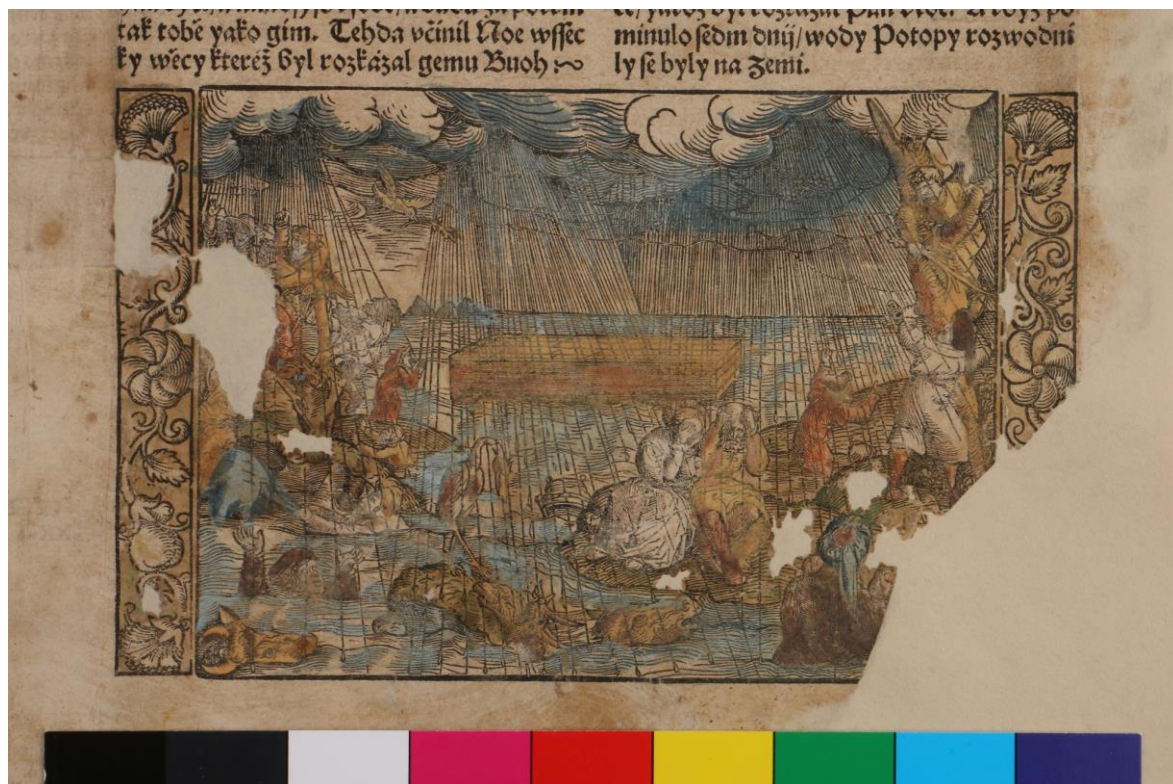 tak tobě yako gim. Tehda včinil Noe wſſec
ky wěcy kteréž byl rozkázal gemu Buoh :~
minulo ſedm dnij/ wody Potopy rozwodni
ly ſe byly na Zemi.